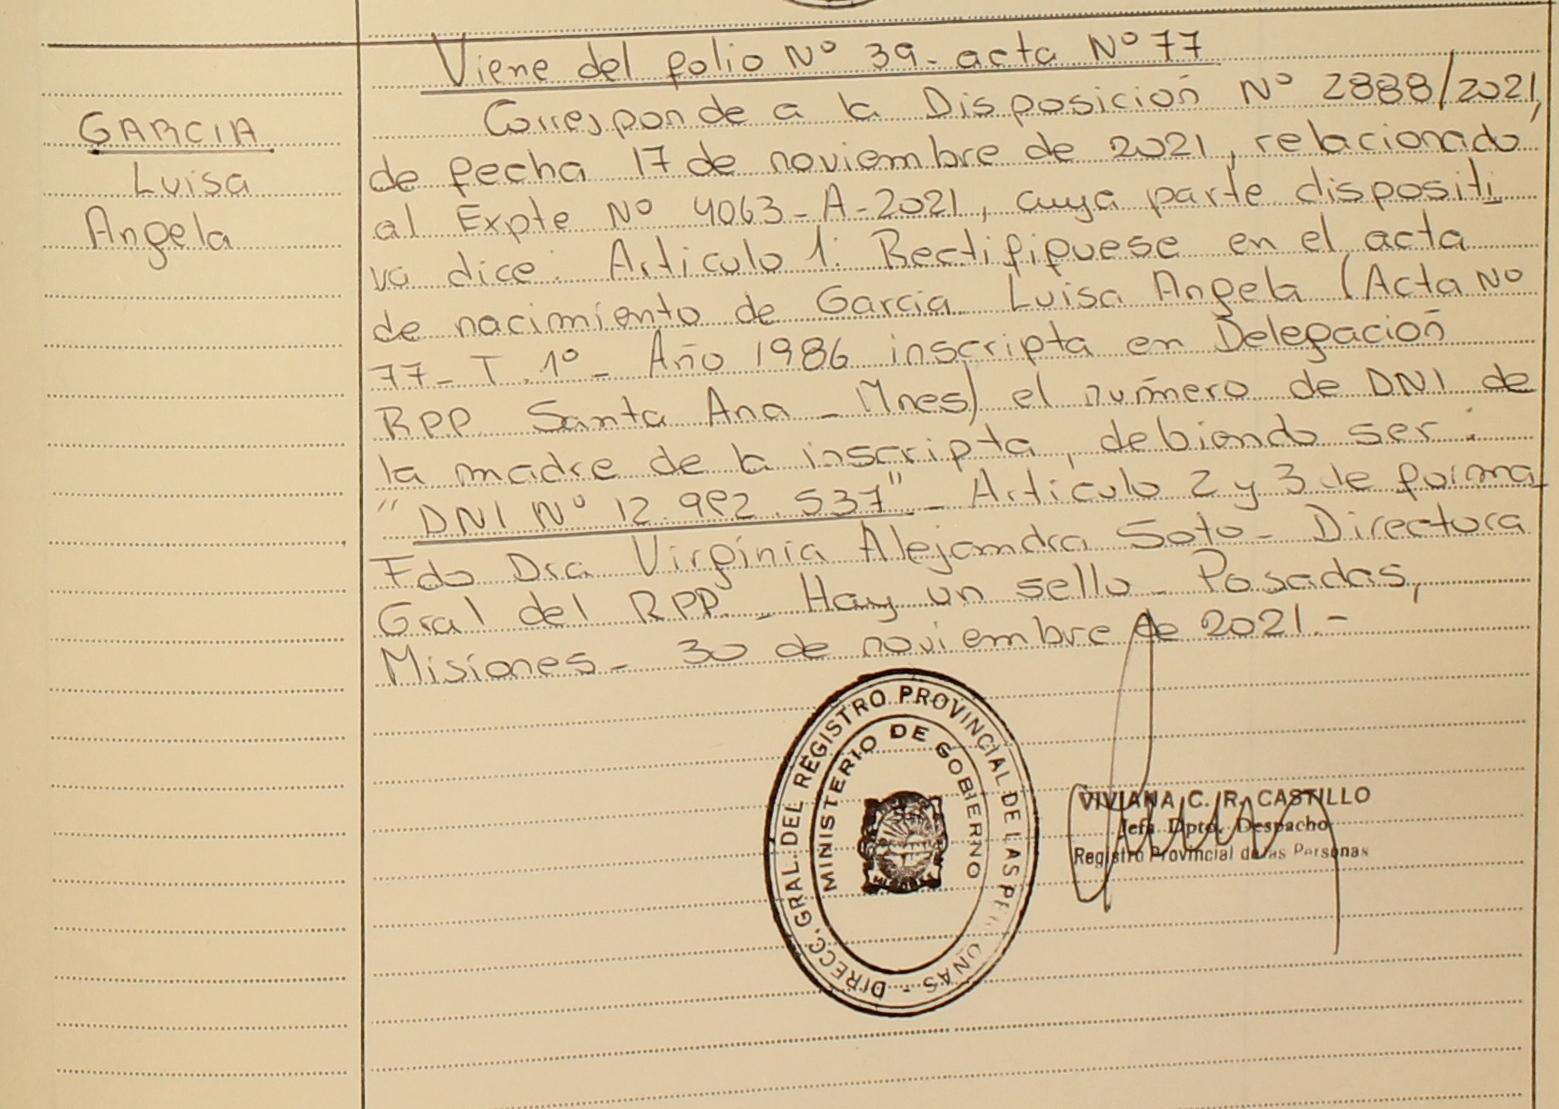 Viene del folio Nº 39- acta Nº 77
GARCIA
Luisa
Angela
Corresponde a la Disposición Nº 2888/2021,
de fecha 17 de noviembre de 2021, relacionado
al Expte Nº 4063-A-2021, cuya parte dispositi
va dice: Articulo 1: Rectifiquese en el acta
de nacimiento de Garcia Luisa Angela (Acta Nº
77- T. 1º- Año 1986 inscripta en Delegación
RPP Santa Ana - Mnes) el número de DNI de
la madre de la inscripta, debiendo ser:
"DNI Nº 12.992.537"- Artículo 2 y 3 de forma
Fdo Dra Virginia Alejandra Soto- Directora
Gral del RPP- Hay un sello- Posadas,
Misiones- 30 de noviembre de 2021.-
DIRECC. GRAL. DEL REGISTRO PROVINCIAL DE LAS PERSONAS -
MINISTERIO DE GOBIERNO
MISIONES
VIVIANA C. R. CASTILLO
Jefa Dpto. Despacho
Registro Provincial de las Personas